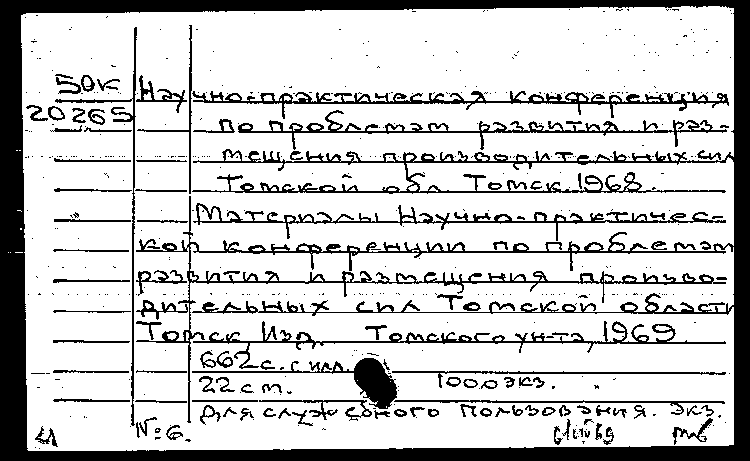 50к
20265
Научно-практическая конференция
по проблемам развития и раз-
мещения производительных сил
Томской обл. Томск. 1968.
Материалы Научно-практичес-
кой конференции по проблемам
развития и размещения произво-
дительных сил Томской области
Томск, Изд. Томского ун-та, 1969
662 с. с илл.
22 см. 1000 экз.
Для служебного пользования. экз.
№ 6.